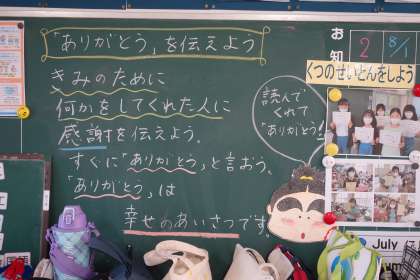 「ありがとう」を伝えよう
きみのために
何かをしてくれた人に
感謝を伝えよう。
すぐに「ありがとう」と言おう。
「ありがとう」は
幸せのあいさつです。
読んで
くれて
「ありがとう!」
お知
2
8/1
くつのせいとんをしよう
July